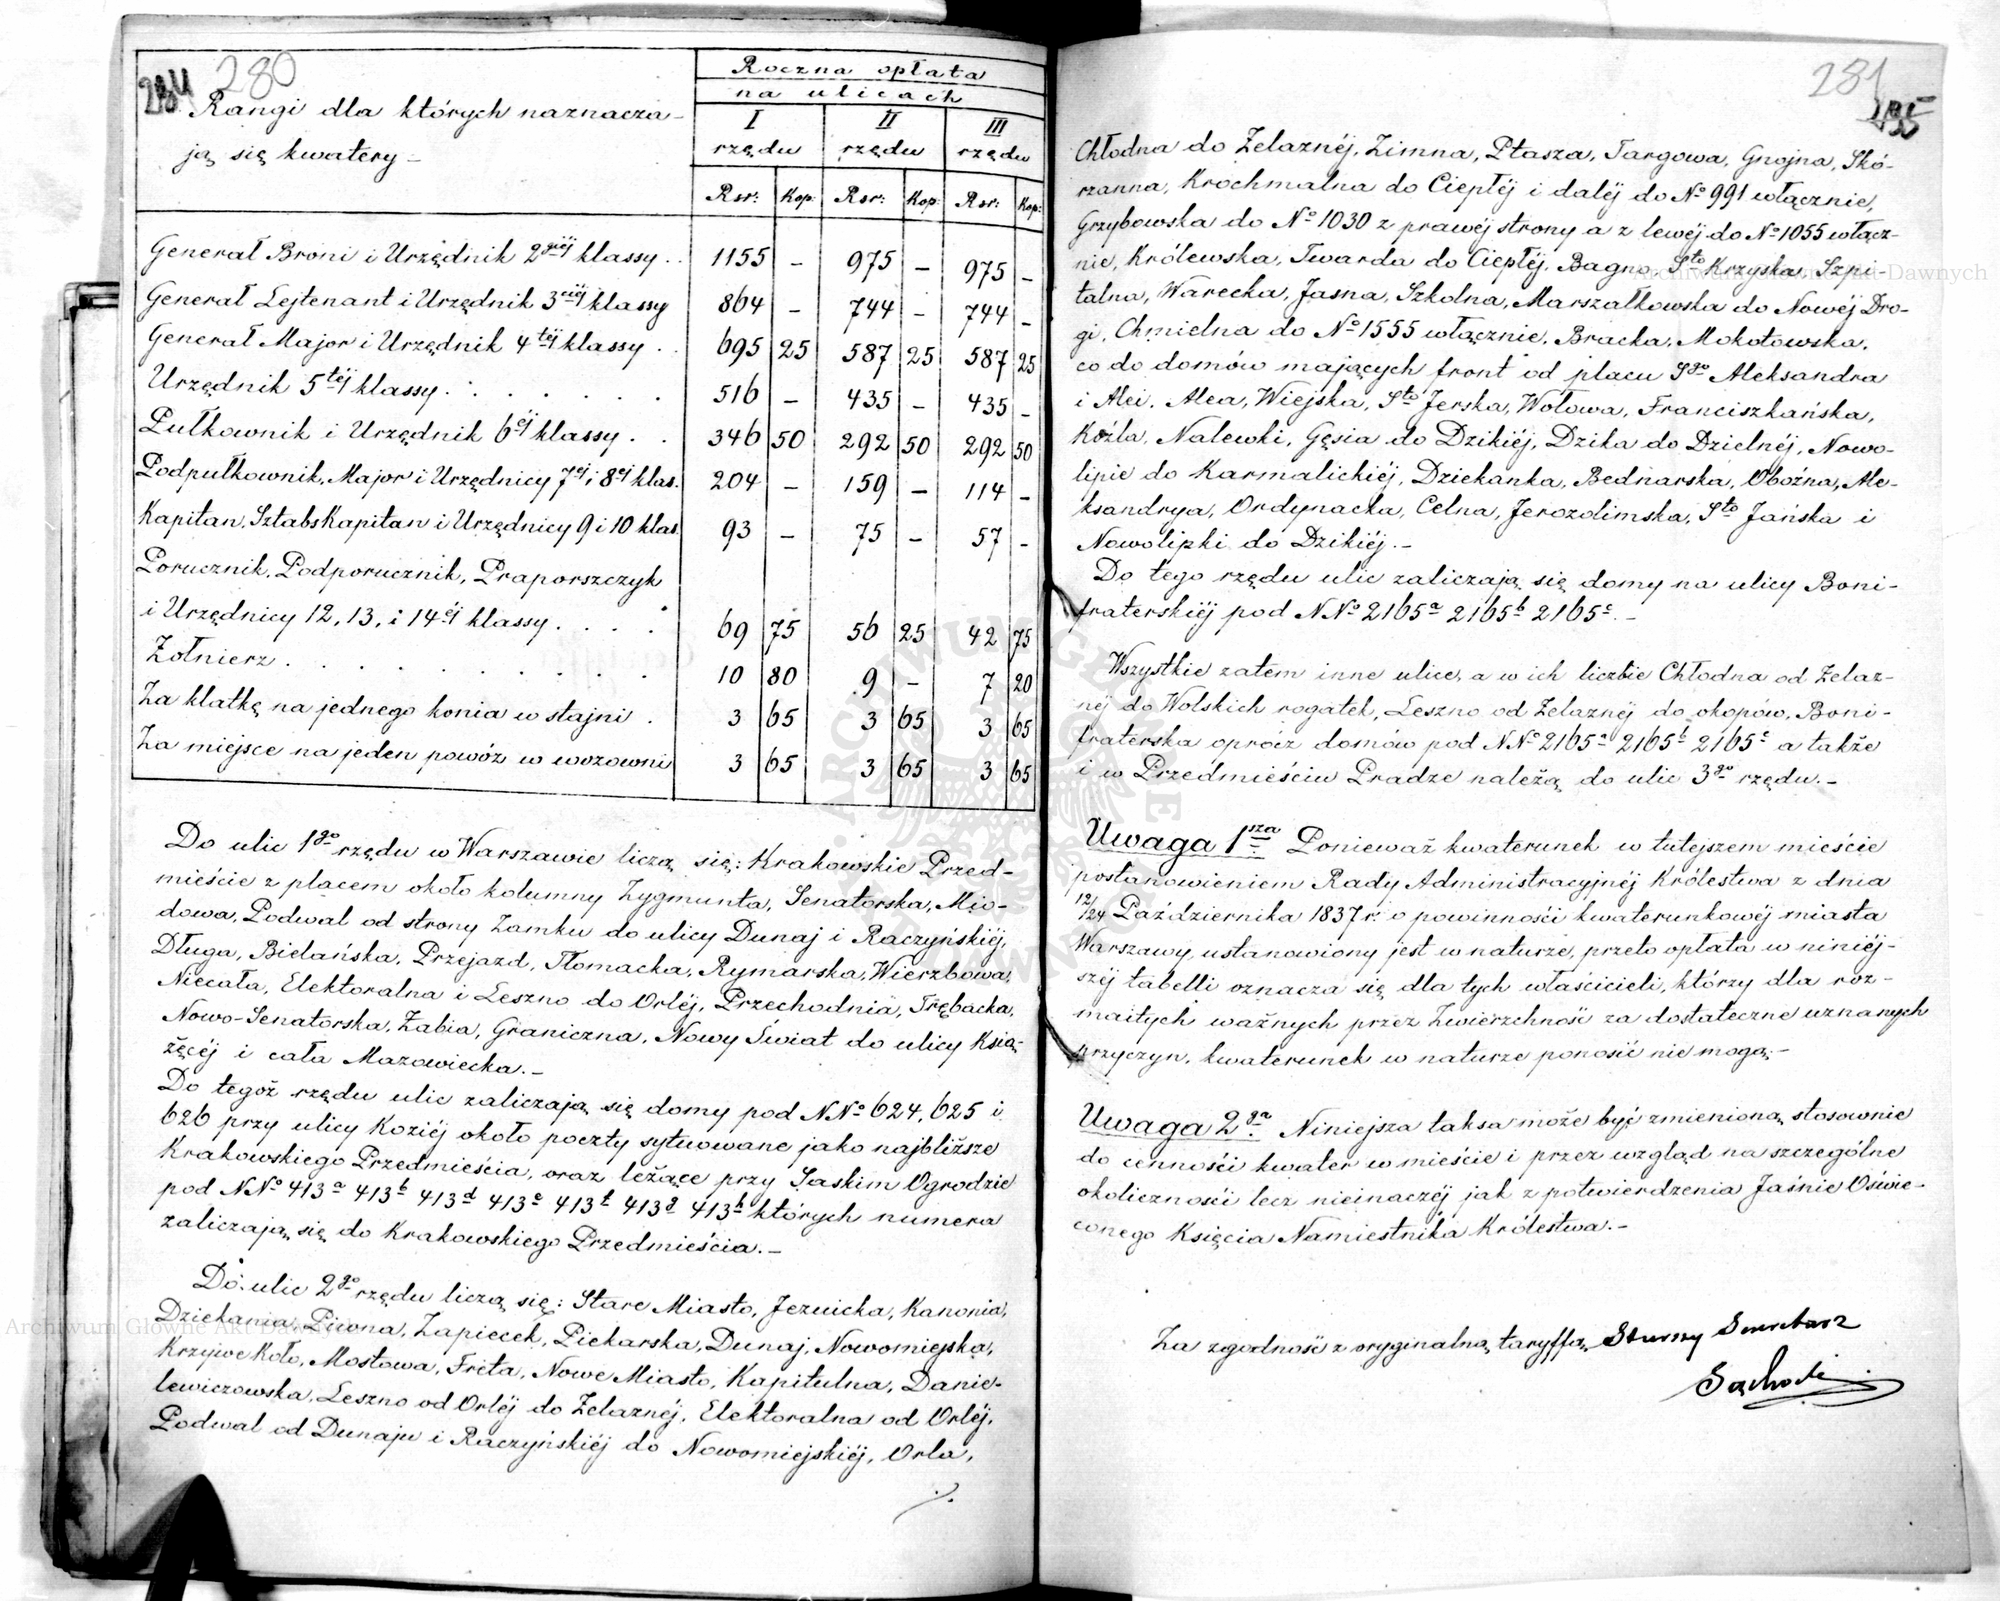 284 280
Roczna opłata
na ulicach
Rangi dla których naznacza-
ją się kwatery –
I rzędu II rzędu III rzędu
Rsr: Kop: Rsr: Kop: Rsr: Kop:
Generał Broni i Urzędnik 2giéj klassy . . 1155 – 975 – 975 –
Generał Lejtenant i Urzędnik 3ciéj klassy 864 – 744 – 744 –
Generał Major i Urzędnik 4téj klassy . . 695 25 587 25 587 25
Urzędnik 5téj klassy . . . . . . 516 – 435 – 435 –
Pułkownik i Urzędnik 6éj klassy . . 346 50 292 50 292 50
Podpułkownik, Major i Urzędnicy 7éj i 8éj klas. 204 – 159 – 114 –
Kapitan, SztabsKapitan i Urzędnicy 9 i 10 klas. 93 – 75 – 57 –
Porucznik, Podporucznik, Praporszczyk
i Urzędnicy 12, 13, i 14éj klassy . . . . 69 75 56 25 42 75
Żołnierz . . . . . . . . . 10 80 9 – 7 20
Za klatkę na jednego konia w stajni . 3 65 3 65 3 65
Za miejsce na jeden powóz w wozowni 3 65 3 65 3 65
Do ulic 1go rzędu w Warszawie liczą się: Krakowskie Przed-
mieście z placem około kolumny Zygmunta, Senatorska, Mio-
dowa, Podwal od strony Zamku do ulicy Dunaj i Raczyńskiéj,
Długa, Bielańska, Przejazd, Tłomacka, Rymarska, Wierzbowa,
Niecała, Elektoralna i Leszno do Orléj, Przechodnia, Trębacka,
Nowo-Senatorska, Żabia, Graniczna, Nowy Świat do ulicy Ksią-
żęcéj i cała Mazowiecka. –
Do tegoż rzędu ulic zaliczają się domy pod NNo 624, 625 i
626 przy ulicy Koziéj około poczty sytuowane jako najbliższe
Krakowskiego Przedmieścia, oraz leżące przy Saskim Ogrodzie
pod NNo 413a 413b 413d 413e 413f 413g 413h których numera
zaliczają się do Krakowskiego Przedmieścia. –
Do ulic 2go rzędu liczą się: Stare Miasto, Jezuicka, Kanonia,
Dziekania, Piwna, Zapiecek, Piekarska, Dunaj, Nowomiejska,
Krzywe Koło, Mostowa, Freta, Nowe Miasto, Kapitulna, Danie-
lewiczowska, Leszno od Orléj do Żelaznéj, Elektoralna od Orléj,
Podwal od Dunaju i Raczyńskiéj do Nowomiejskiéj, Orla,
./.
281
285
Chłodna do Żelaznéj, Zimna, Ptasza, Targowa, Gnojna, Skó-
rzanna, Krochmalna do Ciepłéj i daléj do No 991 włącznie,
Grzybowska do No 1030 z prawéj strony a z lewéj do No 1055 włącz-
nie, Królewska, Twarda do Ciepłéj, Bagno, Sto Krzyska, Szpi-
talna, Warecka, Jasna, Szkolna, Marszałkowska do Nowéj Dro-
gi, Chmielna do No 1555 włącznie, Bracka, Mokotowska,
co do domów mających front od placu Sgo Aleksandra
i Alei, Alea, Wiejska, Sto Jerska, Wołowa, Franciszkańska,
Koźla, Nalewki, Gęsia do Dzikiéj, Dzika do Dzielnéj, Nowo-
lipie do Karmalickiéj, Dziekanka, Bednarska, Oboźna, Ale-
ksandrya, Ordynacka, Celna, Jerozolimska, Sto Jańska i
Nowolipki do Dzikiéj. –
Do tego rzędu ulic zaliczają się domy na ulicy Boni-
fraterskiéj pod NNo 2165a 2165b 2165c. –
Wszystkie zatem inne ulice, a w ich liczbie Chłodna od Żelaz-
néj do Wolskich rogatek, Leszno od Żelaznéj do okopów, Boni-
fraterska oprócz domów pod NNo 2165a 2165b 2165c a także
i w Przedmieściu Pradze należą do ulic 3go rzędu. –
Uwaga 1sza Ponieważ kwaterunek w tutejszem mieście
postanowieniem Rady Administracyjnéj Królestwa z dnia
12/24 Października 1837 r. o powinności kwaterunkowéj miasta
Warszawy, ustanowiony jest w naturze, przeto opłata w niniéj-
széj tabelli oznacza się dla tych właścicieli, którzy dla roz-
maitych ważnych przez Zwierzchność za dostateczne uznanych
przyczyn, kwaterunek w naturze ponosić nie mogą. –
Uwaga 2ga. Niniejsza taksa może być zmienioną stosownie
do cenności kwater w mieście i przez wzgląd na szczególne
okoliczności lecz nieinaczéj jak z potwierdzenia Jaśnie Oświe-
conego Księcia Namiestnika Królestwa. –
Za zgodność z oryginalną taryffą, Starszy Sekretarz
Archiwum Główne Akt Dawnych
Archiwum Główne Akt Dawnych